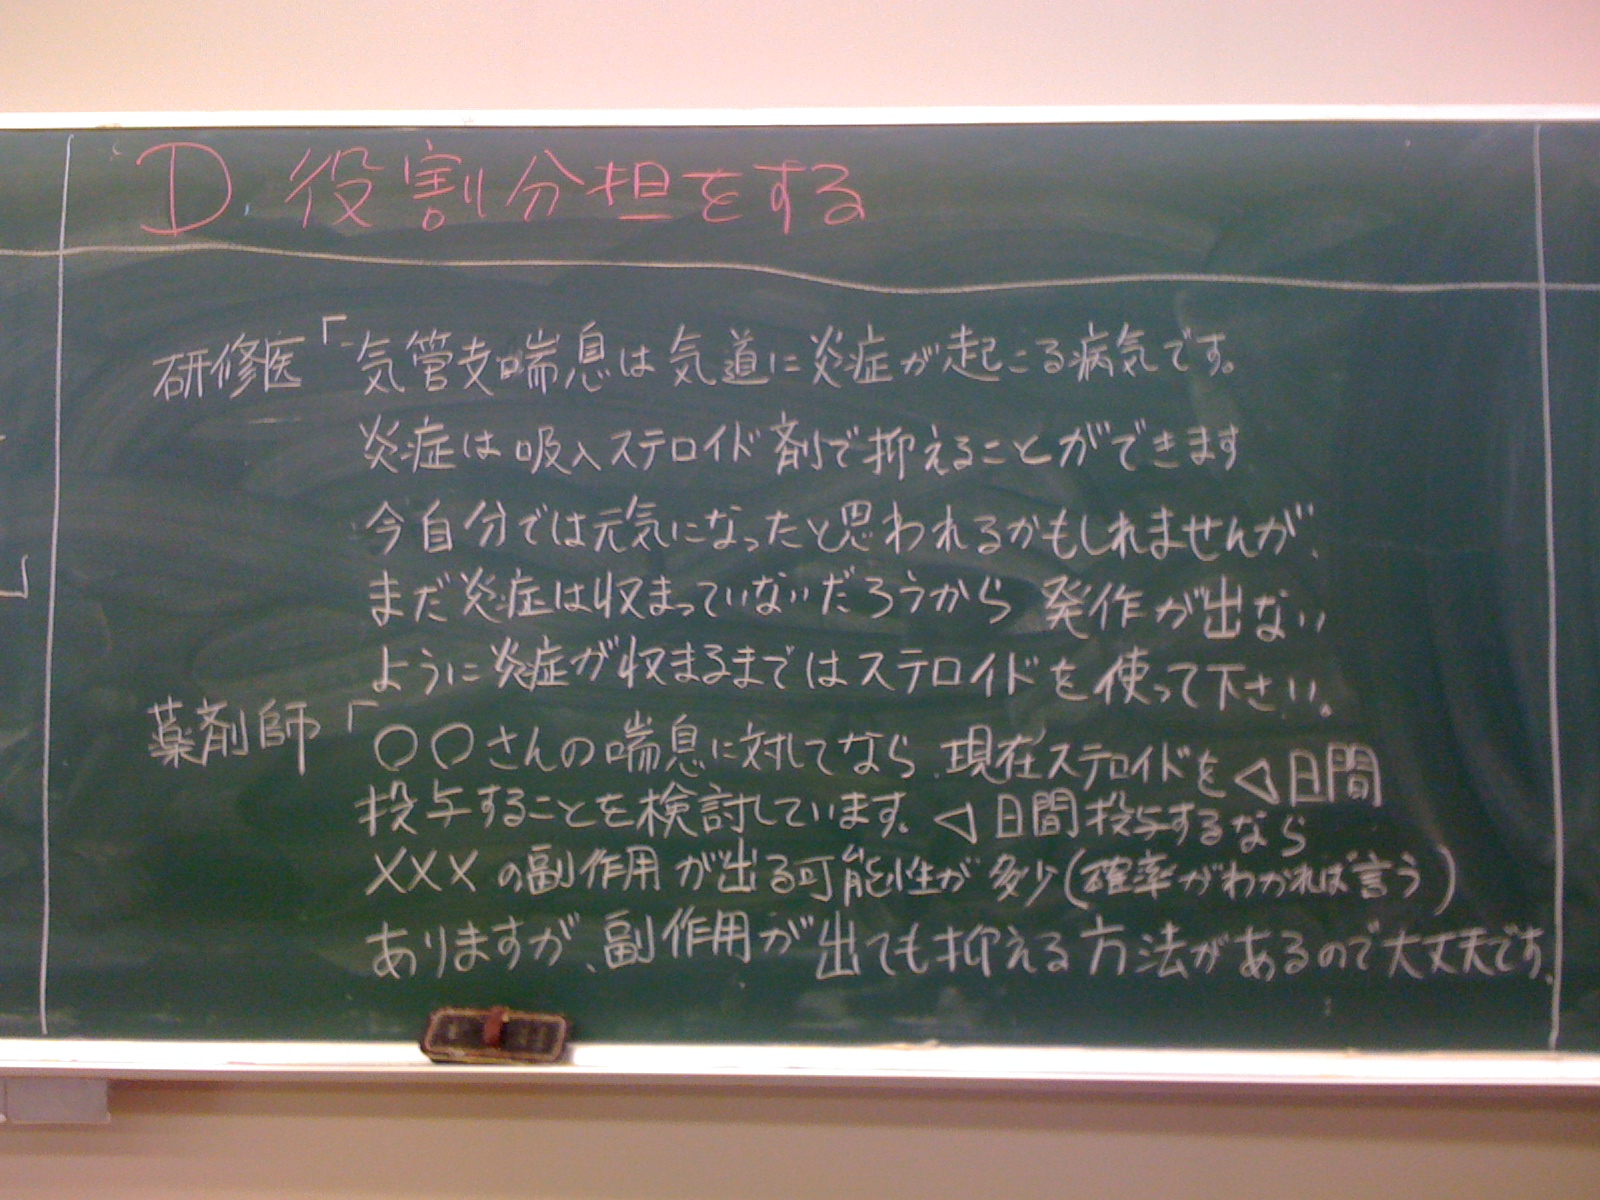 D. 役割分担をする
研修医「気管支喘息は気道に炎症が起こる病気です。
炎症は吸入ステロイド剤で抑えることができます
今自分では元気になったと思われるかもしれませんが、
まだ炎症は収まっていないだろうから 発作が出ない
ように炎症が収まるまではステロイドを使って下さい。
薬剤師「〇〇さんの喘息に対してなら、現在ステロイドを◁日間
投与することを検討しています。◁日間投与するなら
×××の副作用が出る可能性が多少(確率がわかれば言う)
ありますが、副作用が出ても抑える方法があるので大丈夫です。
」